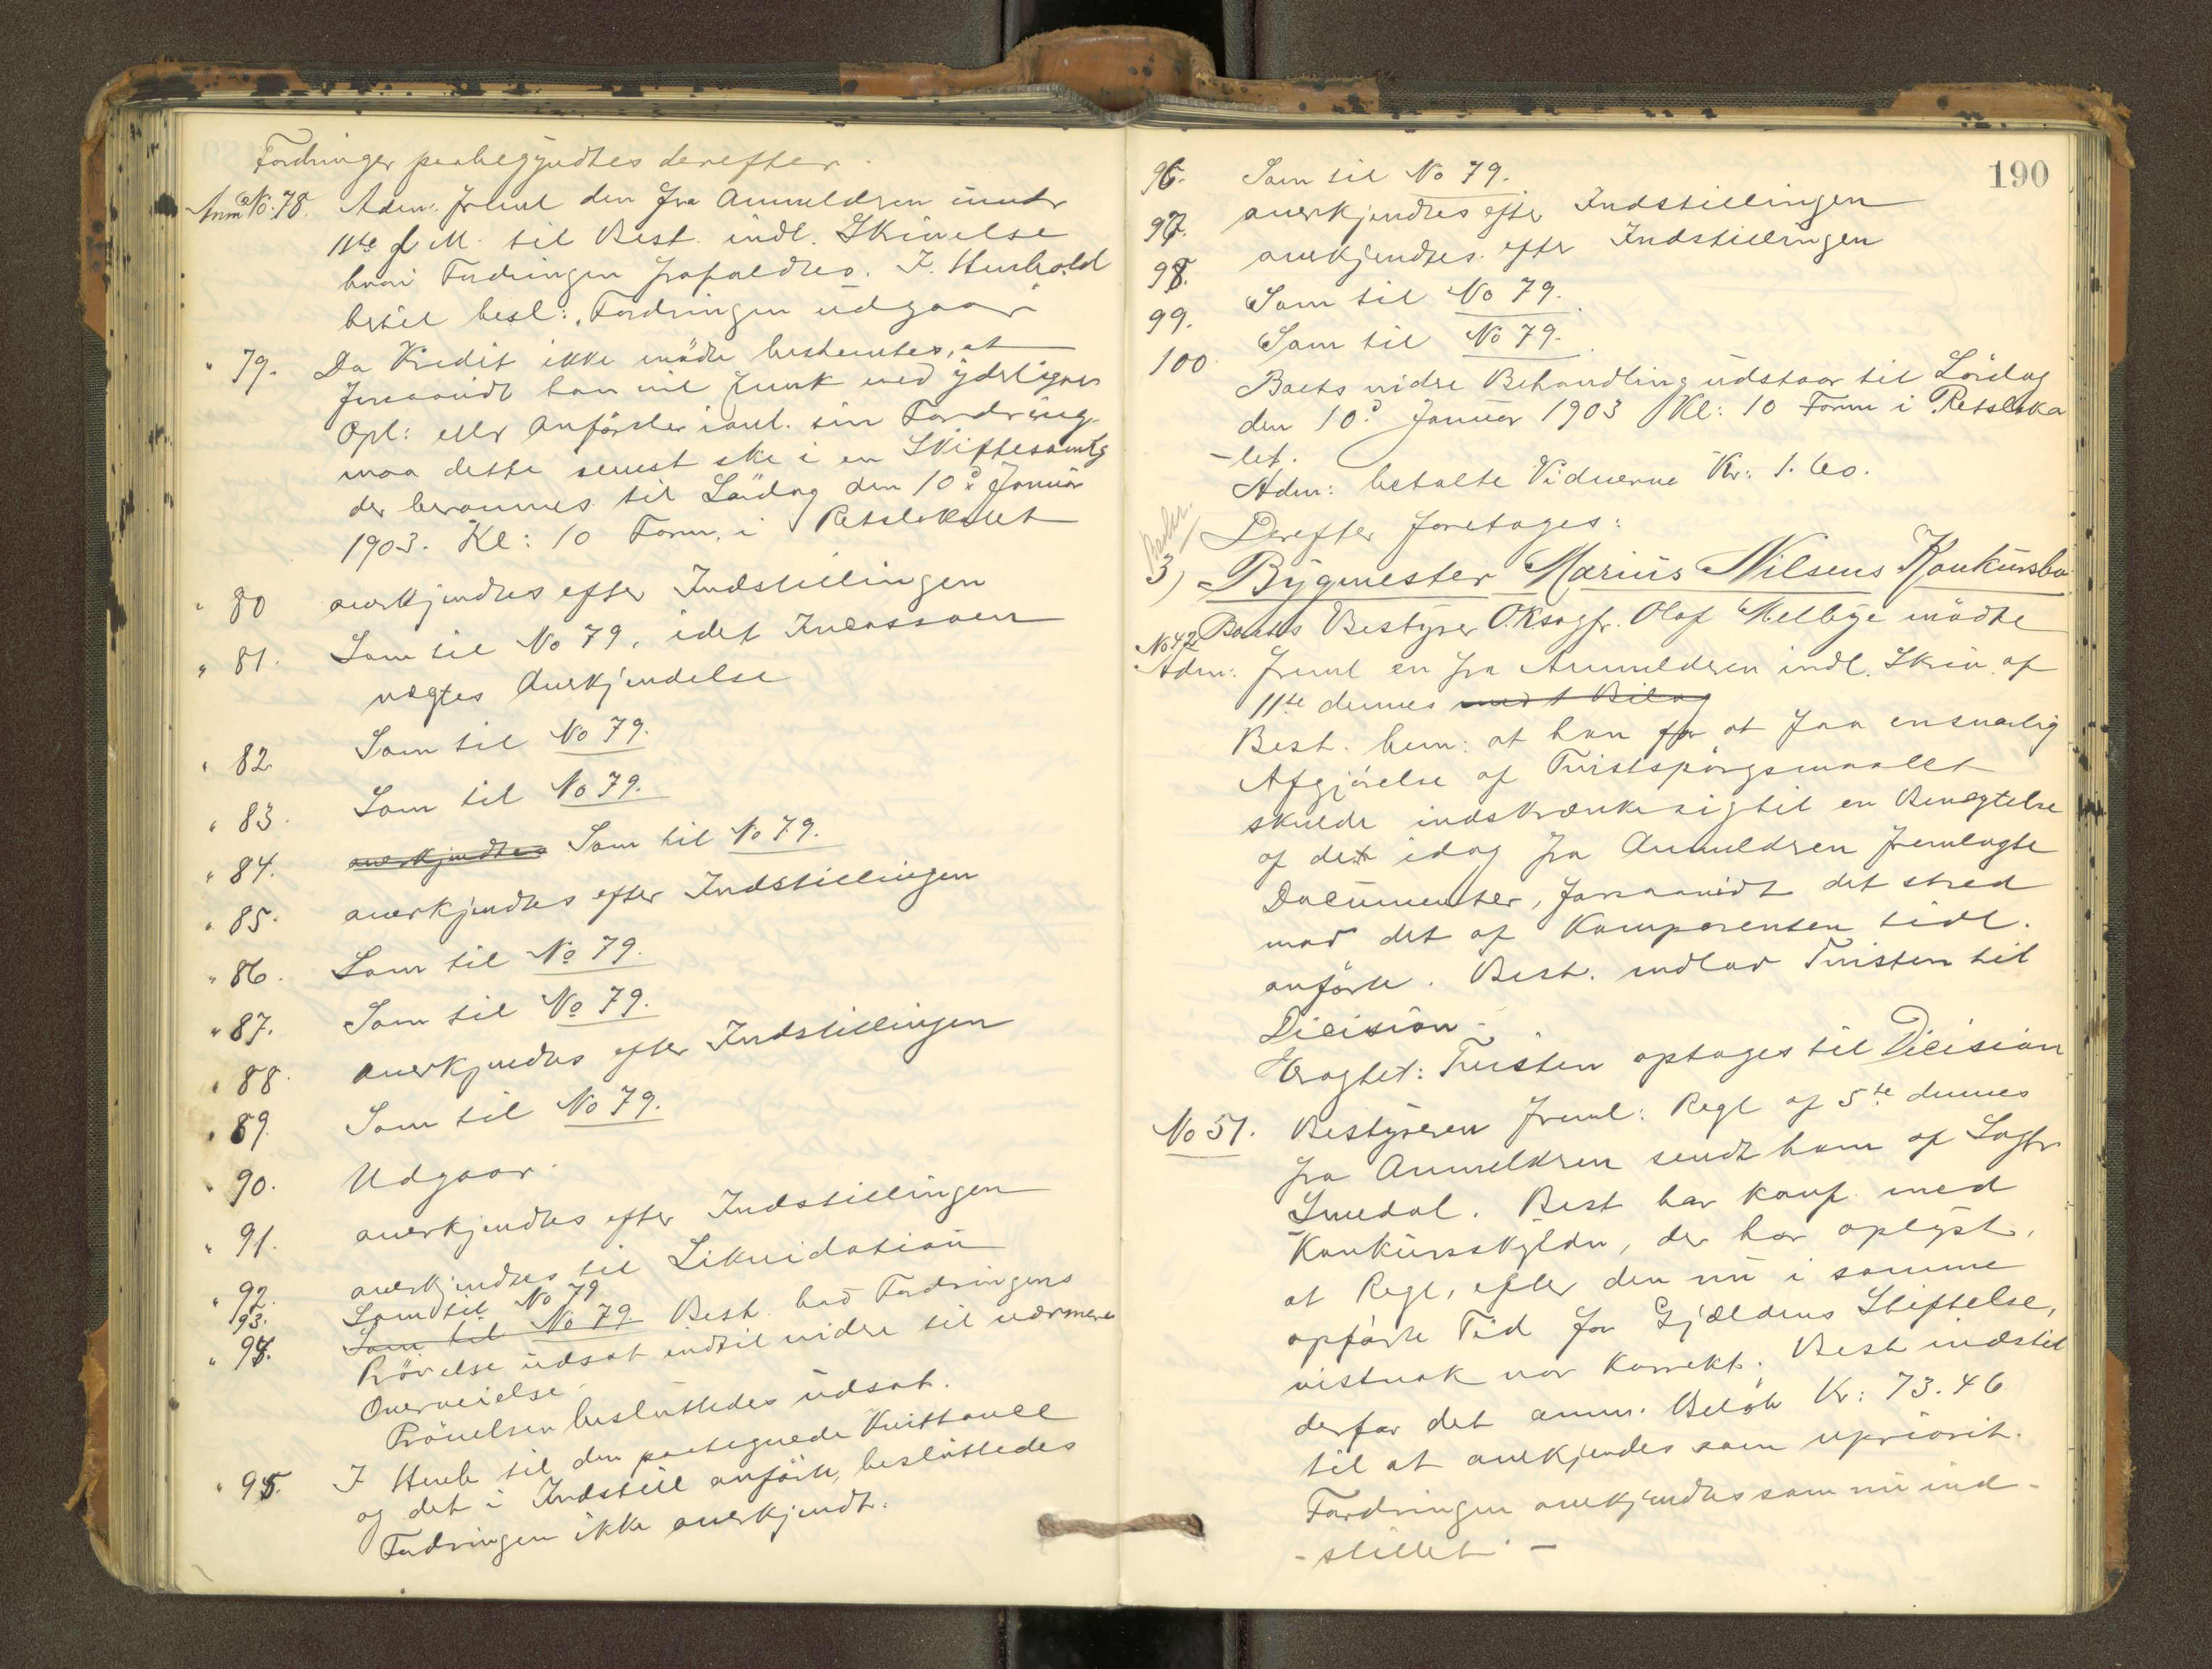 Fordringer paabegyndtes derefter.
Anm. No. 78. Adm. freml den fra Anmelderen under
11te d M. til Best. indl. Skrivelse
hvori Fordringen frafaldtes. I Henhold
hertil besl: "Fordringen udgaar"
" 79. Da Kredit ikke mødte bestemtes, at
forsaavidt han vil frmk med yderligere
Opl: eller Anførsler i anl. sin Fordring,
maa dette senest ske i en Skiftesamlg
der berammes til Lördag den 10de Januar
1903. Kl: 10 Form. i Retslokalet
" 80 anerkjendtes efter Indstillingen
" 81. Som til No 79, idet Incassoen
nægtes Anerkjendelse
" 82 Som til No 79.
" 83. Som til No 79.
" 84. anerkjendtes Som til No 79.
" 85. anerkjendtes efter Indstillingen
" 86. Som til No 79.
" 87. Som til No 79.
" 88. anerkjendtes efter Indstillingen
" 89. Som til No 79.
" 90. Udgaar.
" 91. anerkjendtes efter Indstillingen
" 92. anerkjendtes til Likvidation
93. Som til No 79
" 94. Som til No 79 Best. bad Fordringens
Prövelse udsat indtil videre til nærmere
Overveielse.
Prövelsen besluttedes udsat.
" 95. I Henh til den paategnede Kvittance
og det i Indstill anförte, besluttedes
Fordringen ikke anerkjendt.
190
96. Som til No 79.
97. anerkjendtes efter Indstillingen
98. anerkjendtes efter Indstillingen
99. Som til No 79.
100 Som til No 79.
Boets vidre Behandling udstaar til Lördag
den 10de Januar 1903 Kl: 10 Form i Retsloka
-let.
Adm: betalte Vidnerne Kr: 1.60.
Derefter foretages:
3) Bygmester Marius Nilsens Konkursbo
Boets Bestyrer O.Ksagf. Olaf Melbye mödte
No 42
Adm: freml en fra Anmelderen indl. Skriv. af
11te dennes med 1 Bilag
Best. bem: at han for at faa en snarlig
Afgjörelse af Tvistspörgsmaalet
skulde indskrænke sig til en Benægtelse
af det idag fra Anmelderen fremlagte
Documenter, forsaavidt det stred
mod det af Komparenten tidl.
anförte. Best. indlod Tvisten til
Dicision.
Eragtet: Tvisten optages til Dicision
No 51. Bestyreren freml: Regl af 5te dennes
fra Anmelderen sendt ham af Sagfr
Smedal. Best har konf. med
Konkursskyldn, der har oplyst,
at Regl, efter den nu i samme
opförte Tid for Gjældens Stiftelse,
vistnok var Korrekt. Best indstil
derfor det anm. Belöb Kr: 73.46
til at anerkjendes som upriorit.
Fordringen anerkjendtes som nu ind-
-stillet. -